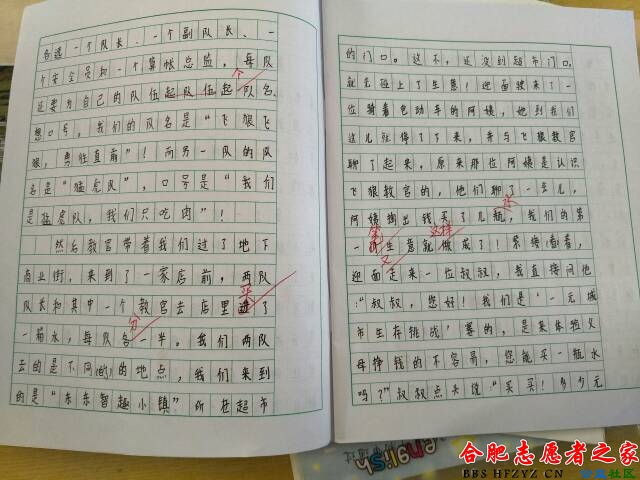 各选一个队长、一个副队长、一
个安全员和一个算帐总监，每队
个
还要为自己的队伍起队伍起队名、
想口号，我们的队名是“飞狼飞
狼，勇往直前”！而另一队的队
名是“猛虎队”，口号是“我们
是猛虎队，我们只吃肉”！
然后教官带着我们过了地下
商业街，来到了一家店前，两队
队长和其中一个教官去店里进了
买
一箱水，每队各一半。我们两队
分
去的是不同的的地点，我们来到
的是“东东智趣小镇”所在超市
的门口。这不，还没到超市门口，
就先碰上了生意！迎面驶来了一
位骑着电动车的阿姨，她到我们
这儿就停了下来，并与飞狼教官
聊了起来，原来那位阿姨是认识
飞狼教官的，他们聊了一会儿，
阿姨掏出钱买了几瓶，我们的第
一单生意就做成了！紧接着，
这样
又
迎面走来一位叔叔，我直接问他
：“叔叔，您好！我们是‘一元城
市生存挑战’赛的，是来体验父
母挣钱的不容易，您能买一瓶水
吗？”叔叔点头说：“买买！多少元
english
合肥志愿者之家
BBS.HFZYZ.CN